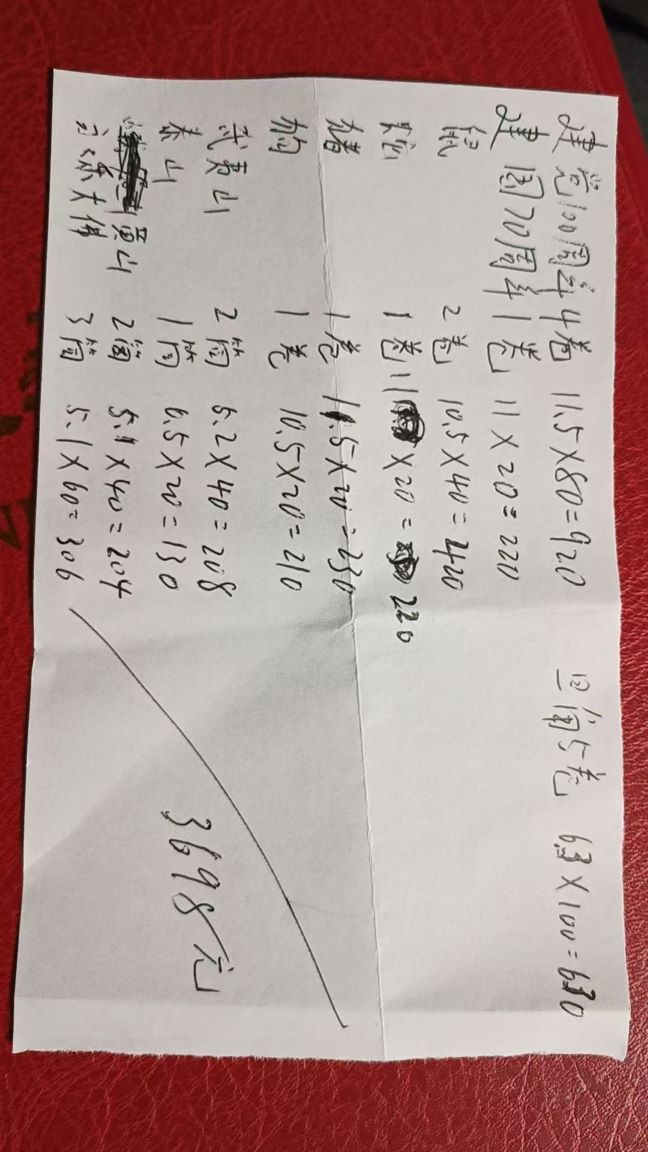 建党100周年4卷 11.5×80=920 旦角5卷 6.3×100=630
建国70周年1卷 11×20=220
鼠 2卷 10.5×40=420
1卷 11×20=220
猪 1卷 11.5×20=230
狗 1卷 10.5×20=210
武夷山 2筒 5.2×40=208
泰山 1筒 6.5×20=130
黄山 2筒 5.1×40=204
乐大佛 3筒 5.1×60=306
3698元